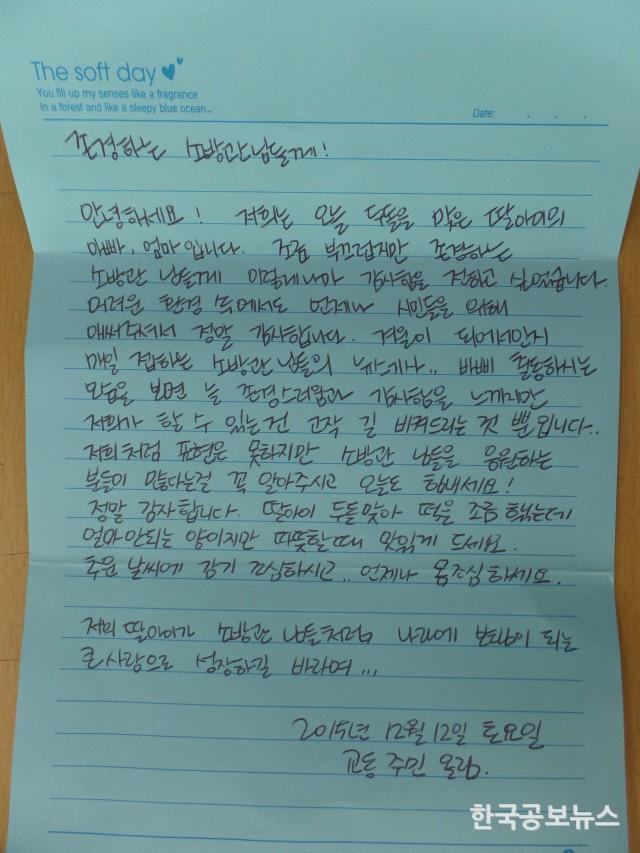 The soft day
You fill up my senses like a fragrance
in a forest and like a sleepy blue ocean...
Date: . . .
존경하는 소방관님들께!
안녕하세요! 저희는 오늘 두돌을 맞은 딸아이의
아빠, 엄마입니다. 조금 부끄럽지만 존경하는
소방관님들께 이렇게나마 감사함을 전하고 싶었습니다.
어려운 환경 속에서도 언제나 시민들을 위해
애써주셔서 정말 감사합니다. 겨울이 되어서인지
매일 접하는 소방관님들의 뉴스기사.. 바삐 활동하시는
모습을 보면 늘 존경스러움과 감사함을 느끼지만
저희가 할 수 있는건 고작 길 비켜드리는 것 뿐입니다..
저희처럼 표현은 못하지만 소방관님들을 응원하는
분들이 많다는걸 꼭 알아주시고 오늘도 힘내세요!
정말 감사합니다. 딸아이 두돌맞아 떡을 조금 했는데
얼마안되는 양이지만 따뜻할때 맛있게 드세요.
추운 날씨에 감기 조심하시고.. 언제나 몸조심하세요.
저희 딸아이가 소방관님들처럼 나라에 보탬이 되는
큰사람으로 성장하길 바라며...
2015년 12월 12일 토요일
교동 주민 올림.
한국공보뉴스